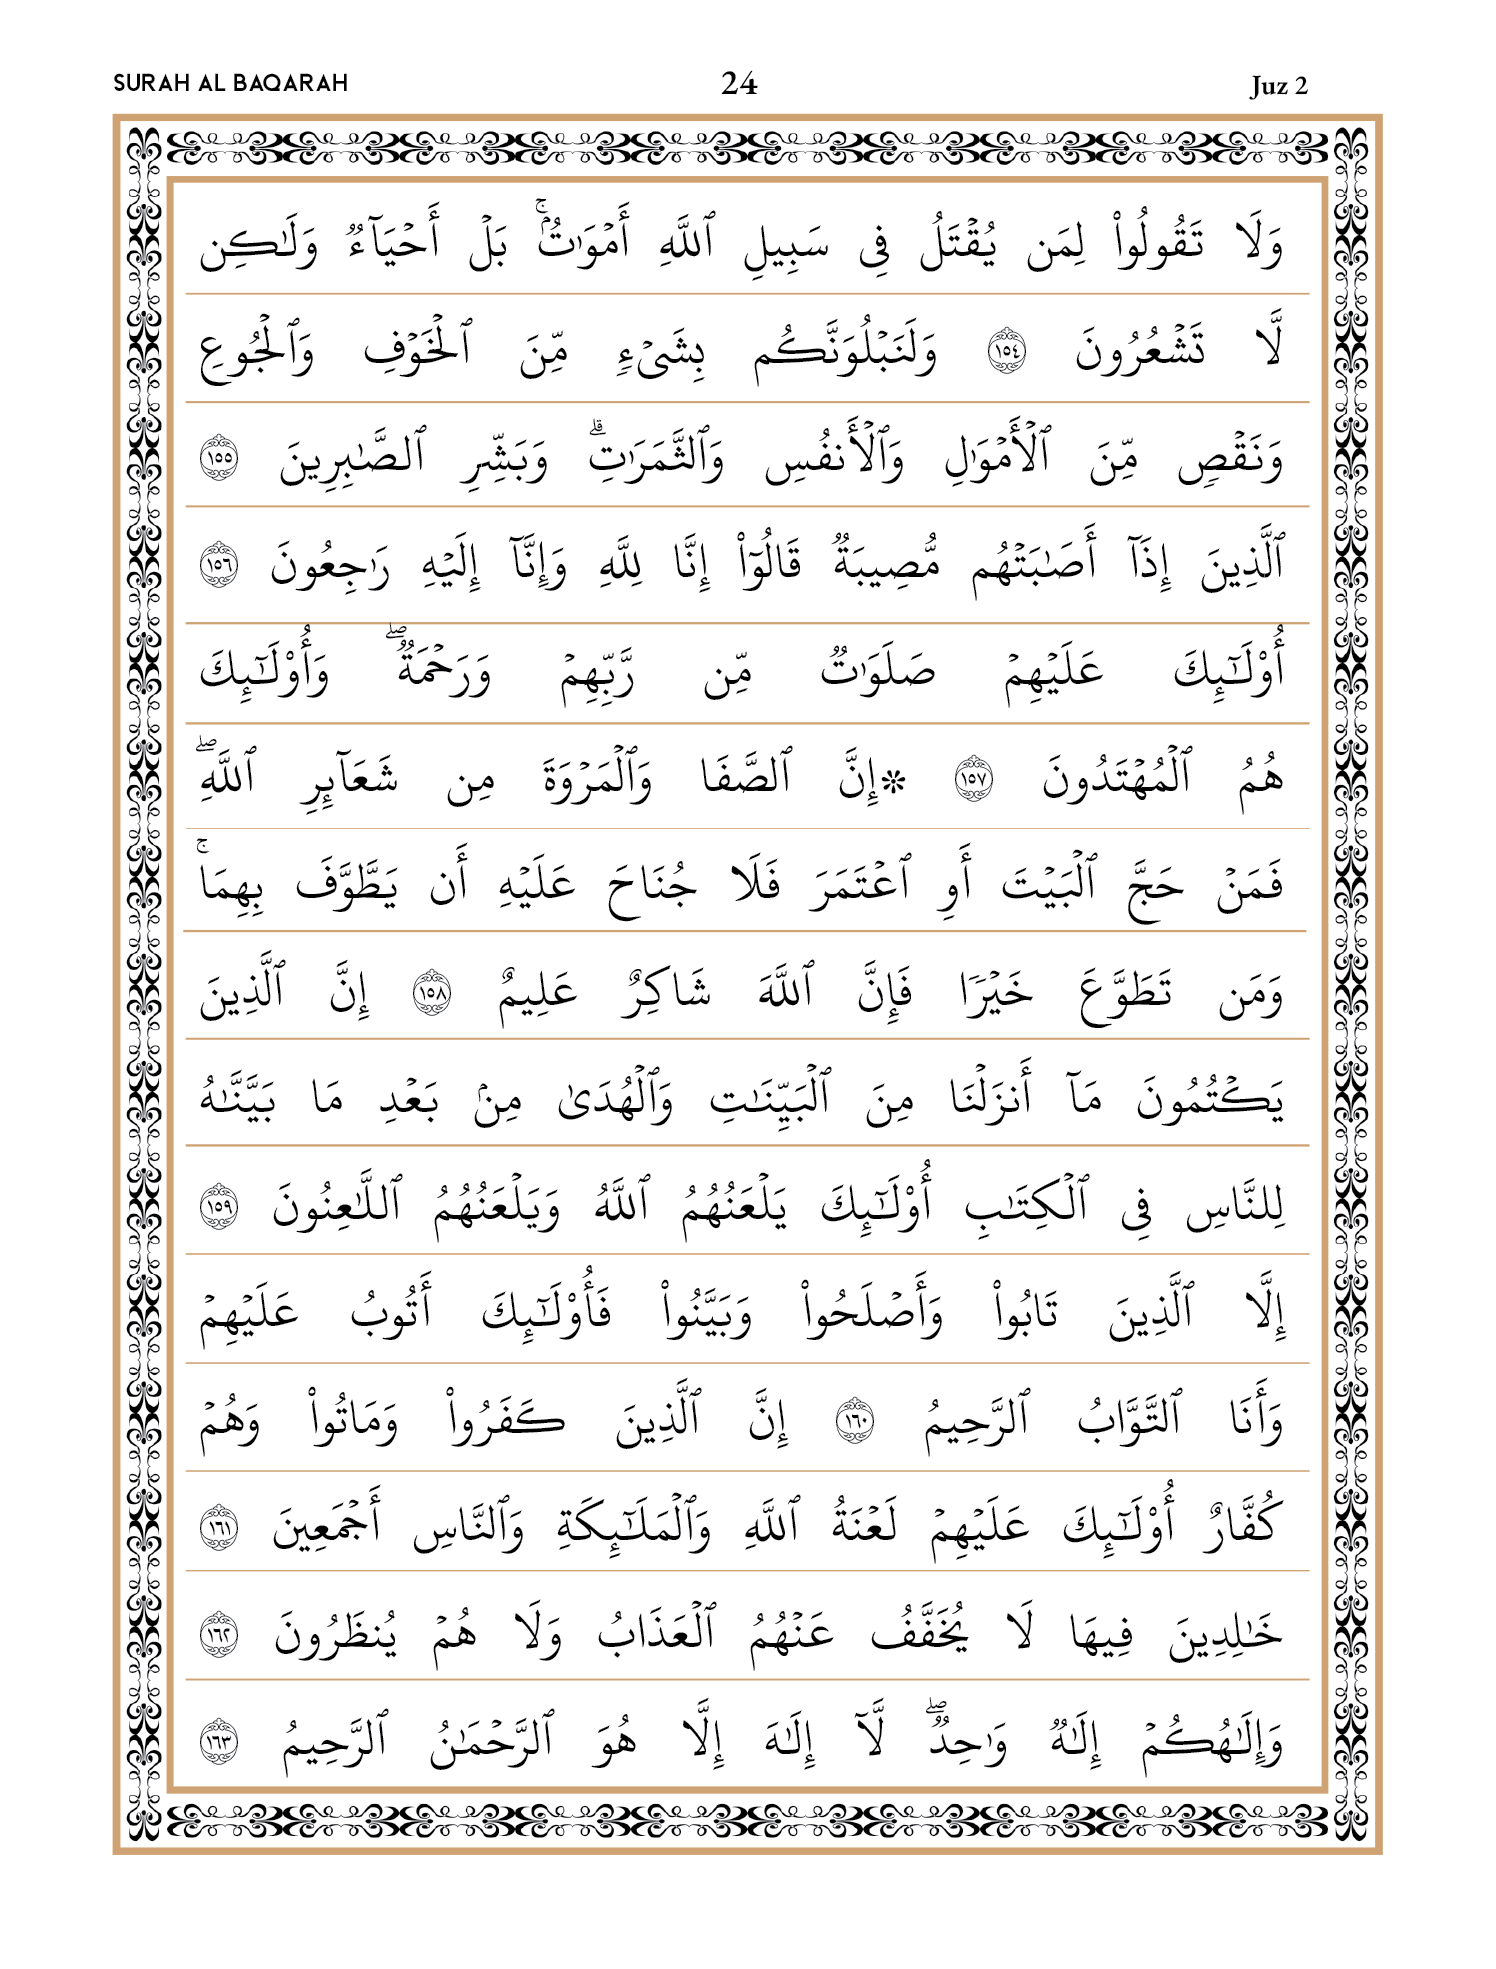 SURAH AL BAQARAH 24 Juz 2
وَلَا تَقُولُوا۟ لِمَن يُقْتَلُ فِى سَبِيلِ ٱللَّهِ أَمْوَٰتٌۢ ۚ بَلْ أَحْيَآءٌ وَلَـٰكِن
لَّا تَشْعُرُونَ ١٥٤ وَلَنَبْلُوَنَّكُم بِشَىْءٍ مِّنَ ٱلْخَوْفِ وَٱلْجُوعِ
وَنَقْصٍ مِّنَ ٱلْأَمْوَٰلِ وَٱلْأَنفُسِ وَٱلثَّمَرَٰتِ ۗ وَبَشِّرِ ٱلصَّـٰبِرِينَ ١٥٥
ٱلَّذِينَ إِذَآ أَصَـٰبَتْهُم مُّصِيبَةٌ قَالُوٓا۟ إِنَّا لِلَّهِ وَإِنَّآ إِلَيْهِ رَٰجِعُونَ ١٥٦
أُو۟لَـٰٓئِكَ عَلَيْهِمْ صَلَوَٰتٌ مِّن رَّبِّهِمْ وَرَحْمَةٌ ۖ وَأُو۟لَـٰٓئِكَ
هُمُ ٱلْمُهْتَدُونَ ١٥٧ ❊إِنَّ ٱلصَّفَا وَٱلْمَرْوَةَ مِن شَعَآئِرِ ٱللَّهِ ۖ
فَمَنْ حَجَّ ٱلْبَيْتَ أَوِ ٱعْتَمَرَ فَلَا جُنَاحَ عَلَيْهِ أَن يَطَّوَّفَ بِهِمَا ۚ
وَمَن تَطَوَّعَ خَيْرًا فَإِنَّ ٱللَّهَ شَاكِرٌ عَلِيمٌ ١٥٨ إِنَّ ٱلَّذِينَ
يَكْتُمُونَ مَآ أَنزَلْنَا مِنَ ٱلْبَيِّنَـٰتِ وَٱلْهُدَىٰ مِنۢ بَعْدِ مَا بَيَّنَّـٰهُ
لِلنَّاسِ فِى ٱلْكِتَـٰبِ أُو۟لَـٰٓئِكَ يَلْعَنُهُمُ ٱللَّهُ وَيَلْعَنُهُمُ ٱللَّـٰعِنُونَ ١٥٩
إِلَّا ٱلَّذِينَ تَابُوا۟ وَأَصْلَحُوا۟ وَبَيَّنُوا۟ فَأُو۟لَـٰٓئِكَ أَتُوبُ عَلَيْهِمْ
وَأَنَا ٱلتَّوَّابُ ٱلرَّحِيمُ ١٦٠ إِنَّ ٱلَّذِينَ كَفَرُوا۟ وَمَاتُوا۟ وَهُمْ
كُفَّارٌ أُو۟لَـٰٓئِكَ عَلَيْهِمْ لَعْنَةُ ٱللَّهِ وَٱلْمَلَـٰٓئِكَةِ وَٱلنَّاسِ أَجْمَعِينَ ١٦١
خَـٰلِدِينَ فِيهَا لَا يُخَفَّفُ عَنْهُمُ ٱلْعَذَابُ وَلَا هُمْ يُنظَرُونَ ١٦٢
وَإِلَـٰهُكُمْ إِلَـٰهٌ وَٰحِدٌ ۖ لَّآ إِلَـٰهَ إِلَّا هُوَ ٱلرَّحْمَـٰنُ ٱلرَّحِيمُ ١٦٣